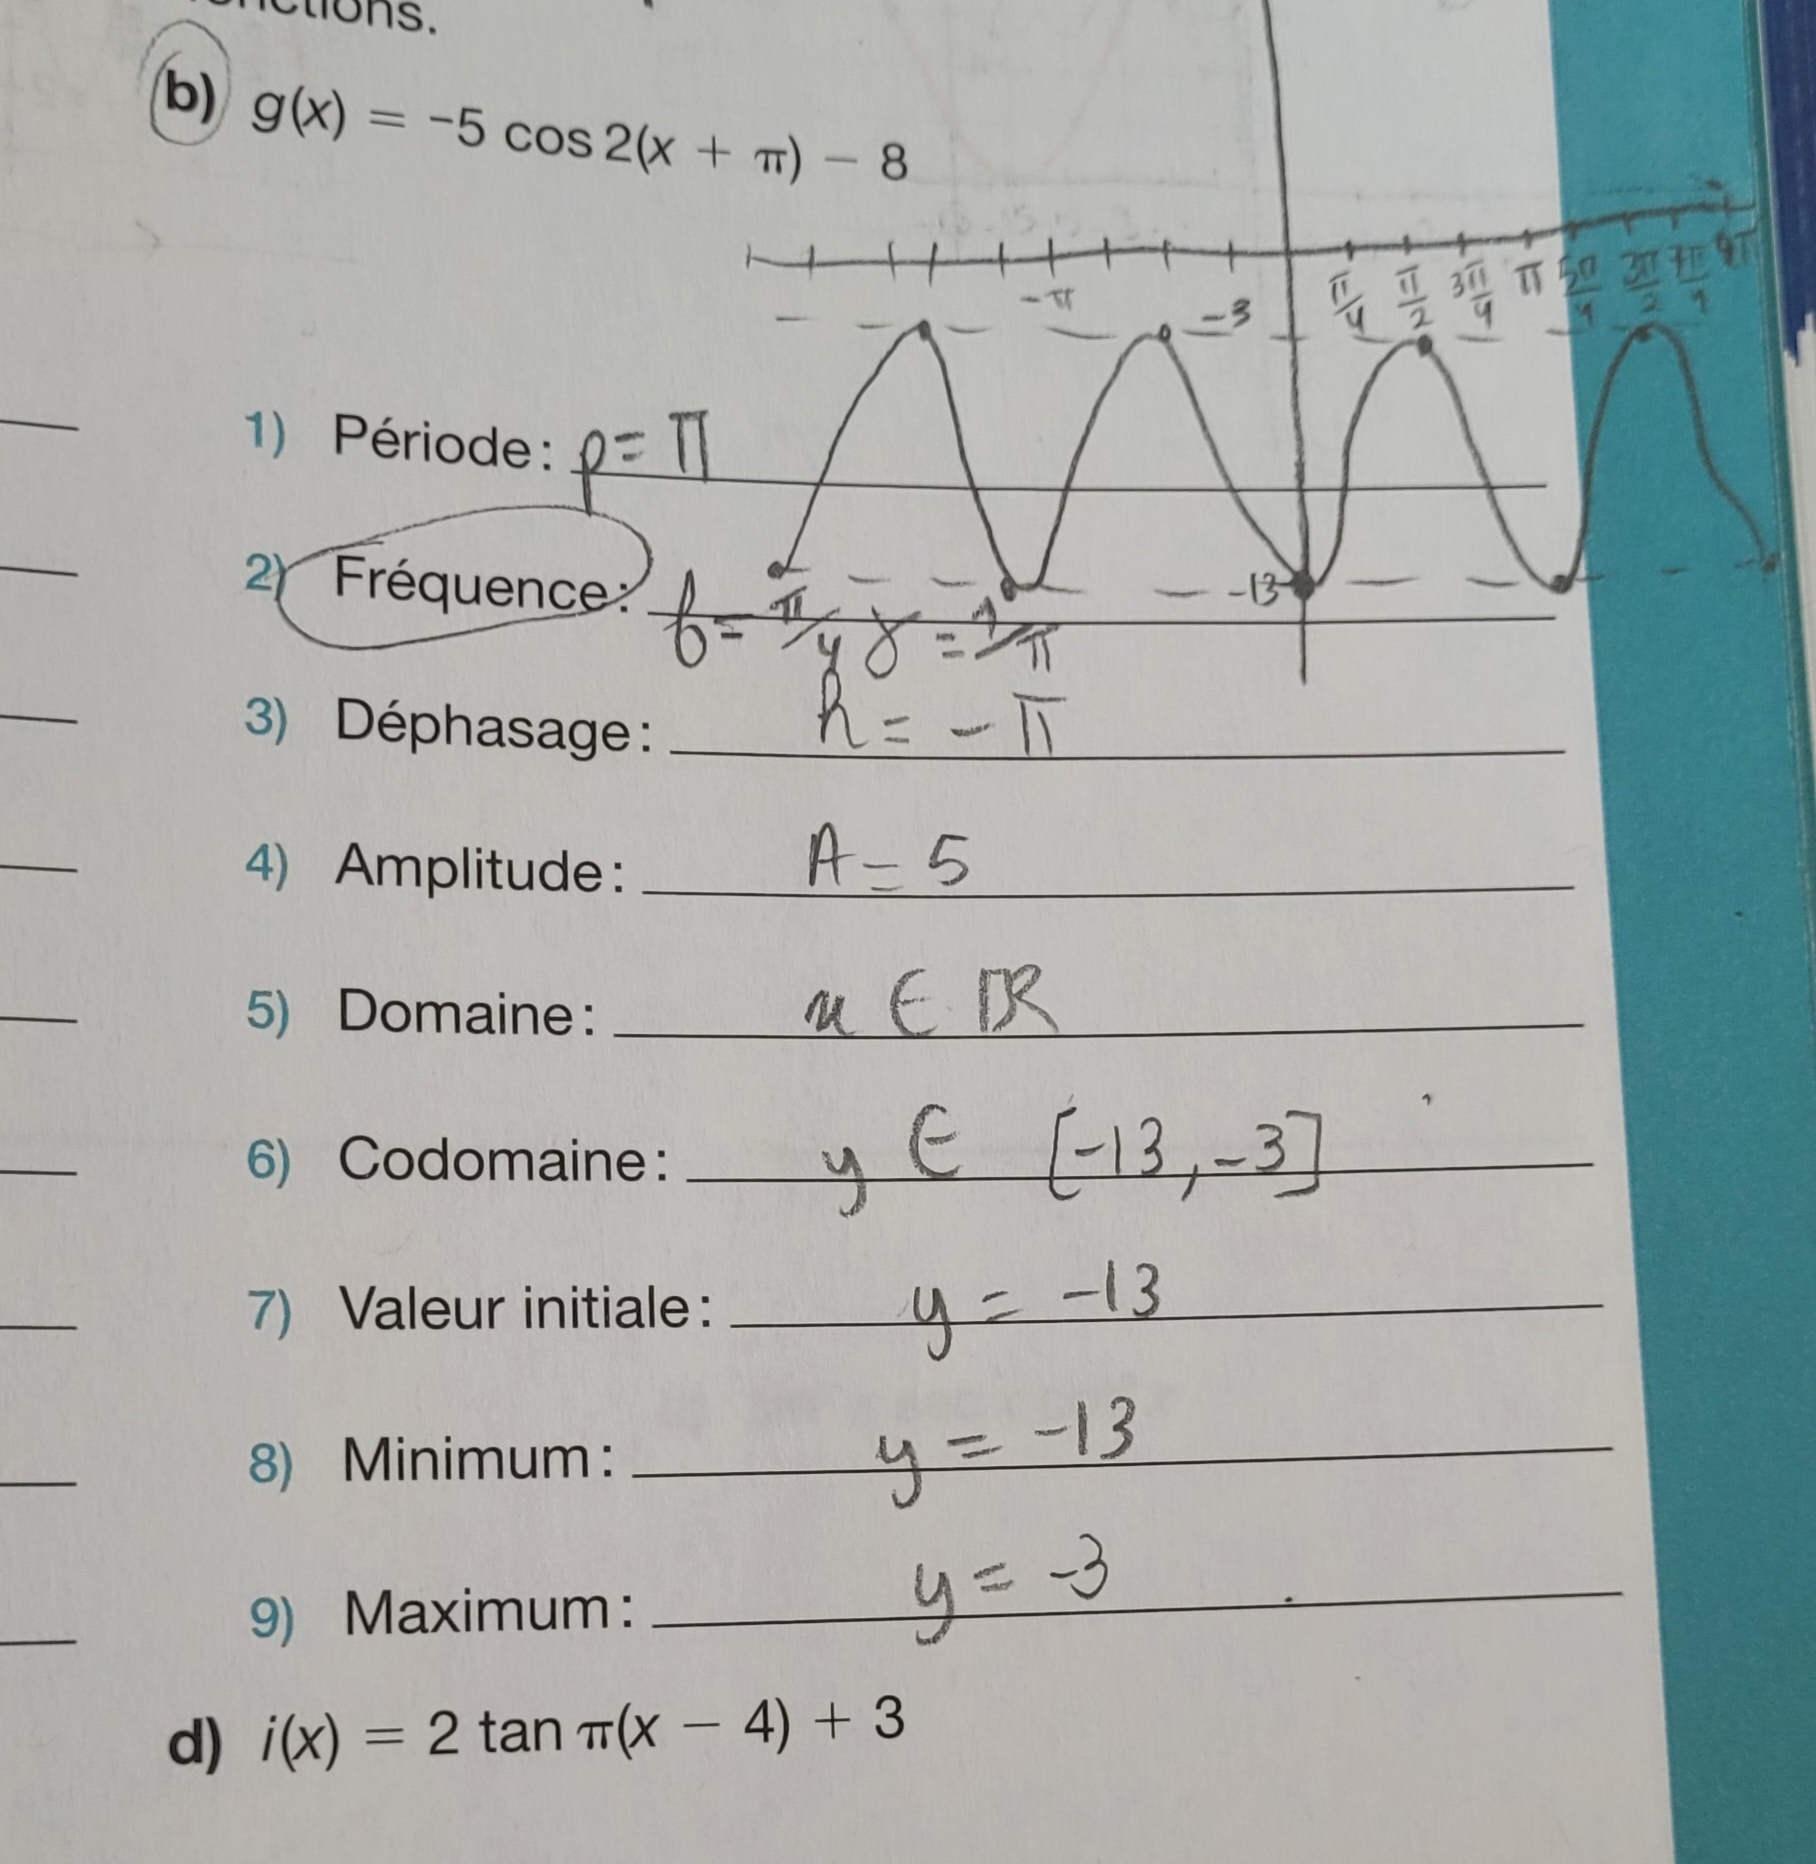 nctions.
b) g(x) = -5 cos 2(x + π) - 8
π/4 π/2 3π/4 π 5π/4 3π/2 7π/4
-π
-3
1) Période: p = π
-13
2) Fréquence: f = π/4 γ = 1/π
3) Déphasage: h = -π
4) Amplitude: A = 5
5) Domaine: x ∈ ℝ
6) Codomaine: y ∈ [-13, -3]
7) Valeur initiale: y = -13
8) Minimum: y = -13
9) Maximum: y = -3
d) i(x) = 2 tan π(x - 4) + 3